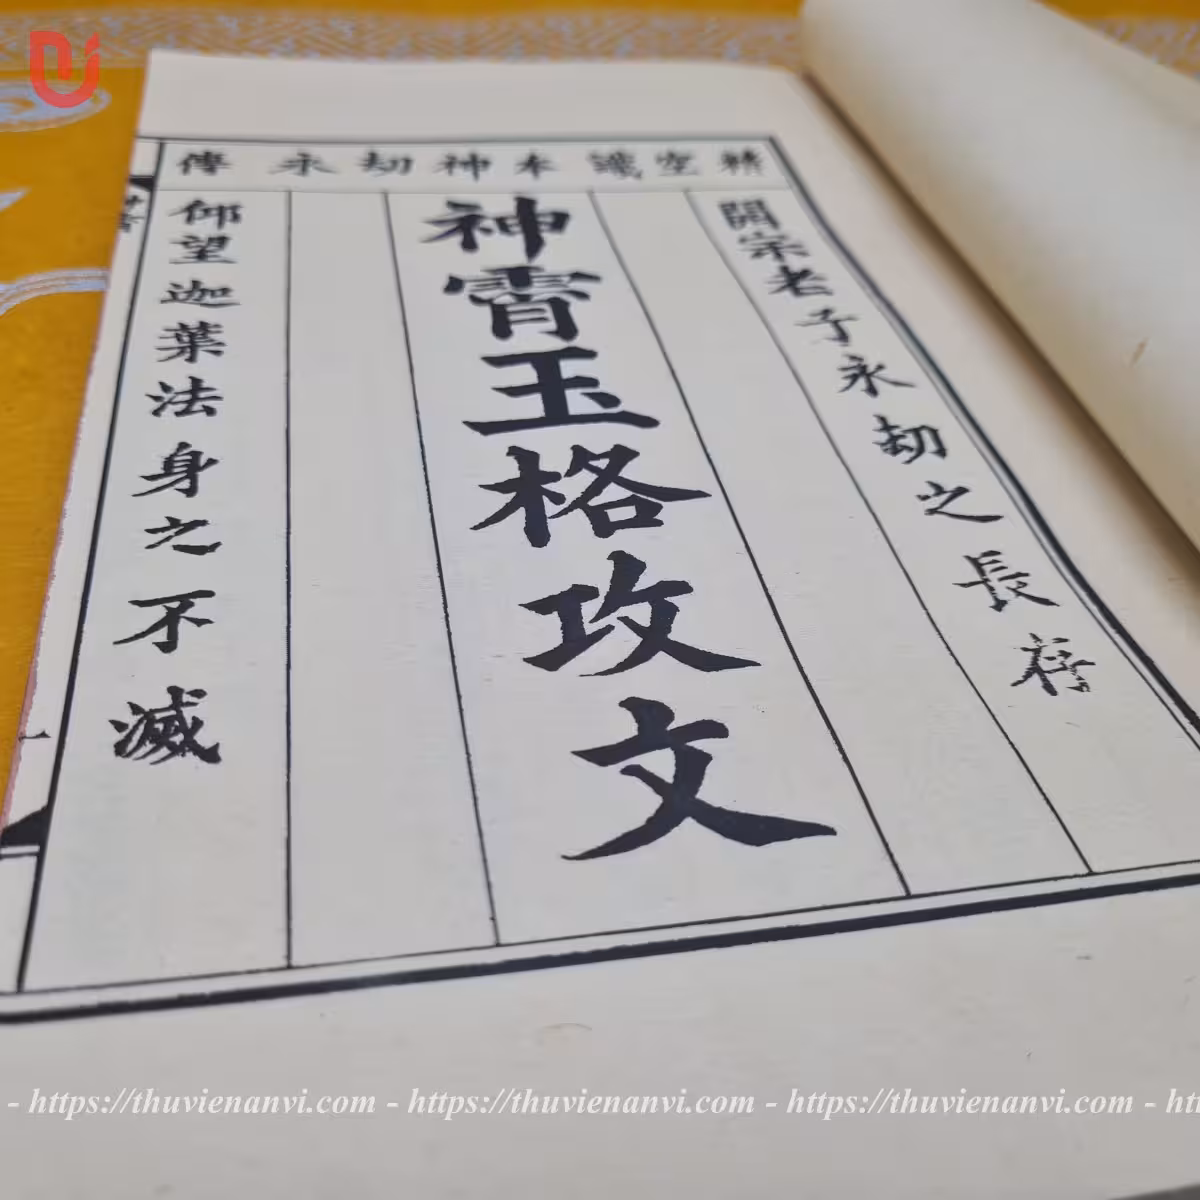 精空識本神劫永傳
開宗老子永劫之長存
神霄玉格攻文
仰望迦葉法身之不滅
- https://thuvienanvi.com - https://thuvienanvi.com - https://thuvienanvi.com - htt